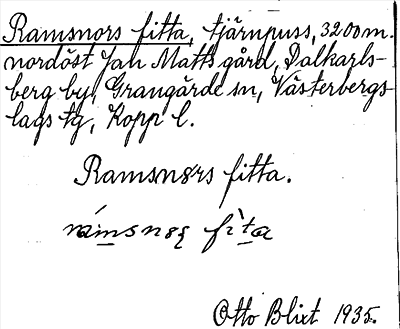 Ramsnors fitta, tjärnpuss, 3200 m.
nordöst Jan Matts gård, Dalkarls-
berg by, Grangärde sn, Västerbergs-
lags tg, Kopp l.
Ramsnørs fitta.
fìta
Otto Blixt 1935.